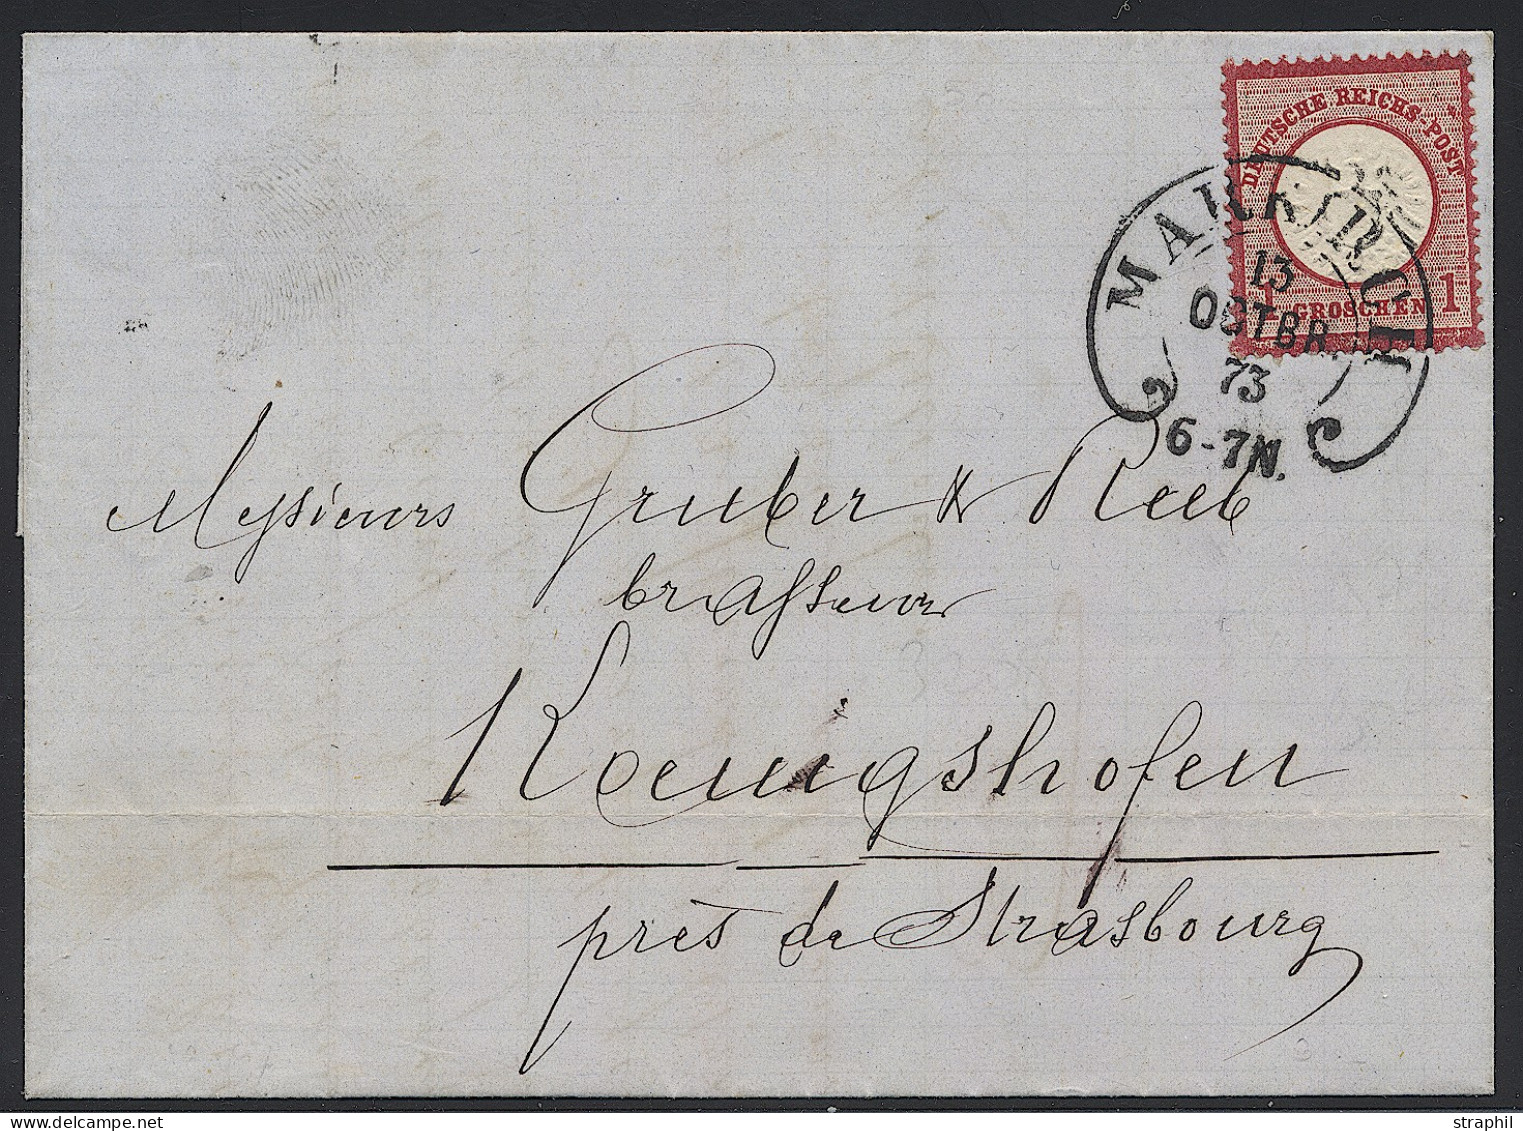 DEUTSCHE REICHS-POST
1 GROSCHEN 1
MARKIRCH
13
OCTBR
73
6-7N.
Messieurs Gruber & Reeb
brasseurs
Koenigshofen
près de Strasbourg
straphil